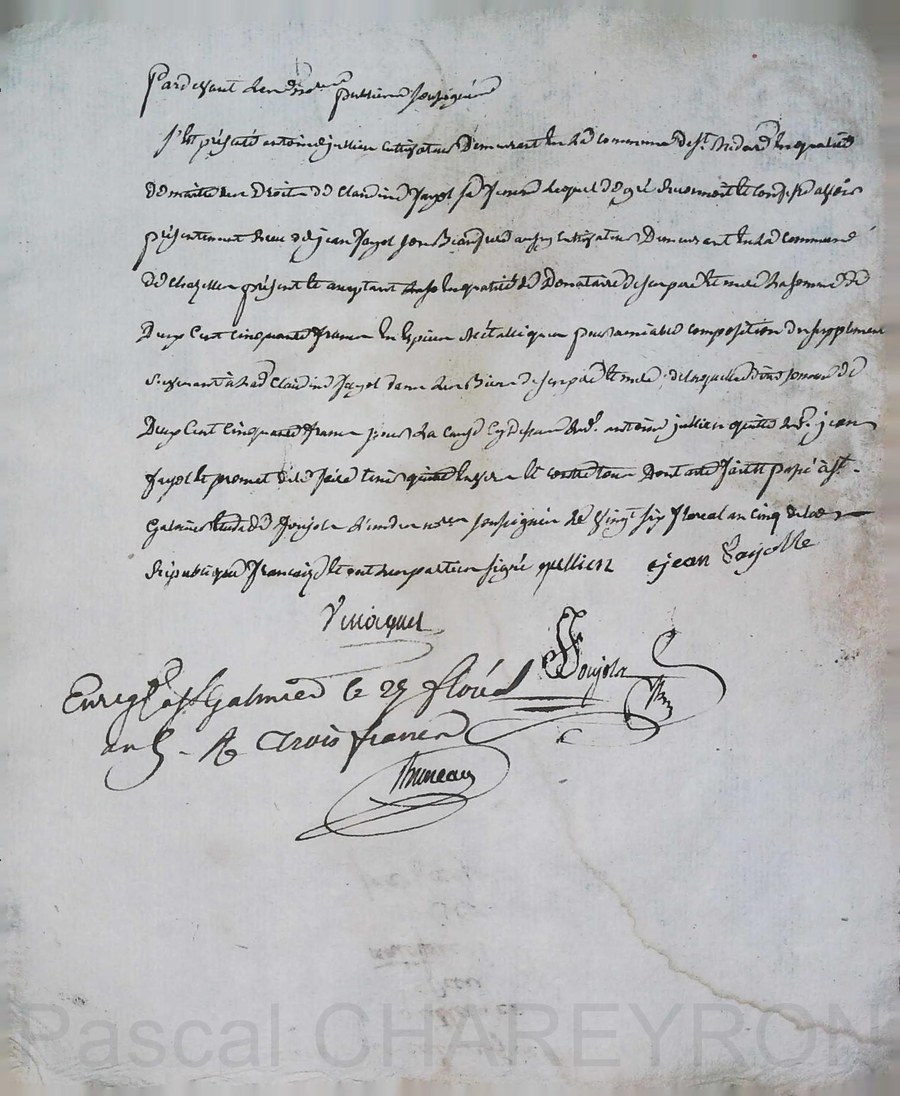 Pardevant les nores publiers soussignés
s'est présenté antoine jullien Cultivateur Demeurant en la commune de st. Medard en qualité
de maitre des Droits de Claudine fayol sa femme lequel de gré reconnoit et Confesse avoir
présentement Reçu de jean fayol son Beaufrere aussy Cultivateur Demeurant en la Commune
de Chazelles présent et aceptant en qualité de Donataire de ses pere et mere la somme de
Deux Cent Cinquante francs En Espèces Métalliques pour amiable composition du supplement
revenant à lad Claudine fayol dans les Biens de ses pere et mere, de laquelle dite somme de
Deux Cent Cinquante francs pour la cause Cy dessus led. antoine jullien quitte led. jean
fayol et promet faire tenir quitte Envers et contre tous Dont acte fait et passé à st.
Galmier Etude de Joujola L'un des nores soussignés le Vingt six floreal an Cinq de la
République francaize et ont les parties signé jullien jean fayolle
Joujola
Enregté à st Galmier le 27 floréal
an 5. R trois francs
Bruneau
Pascal CHAREYRON